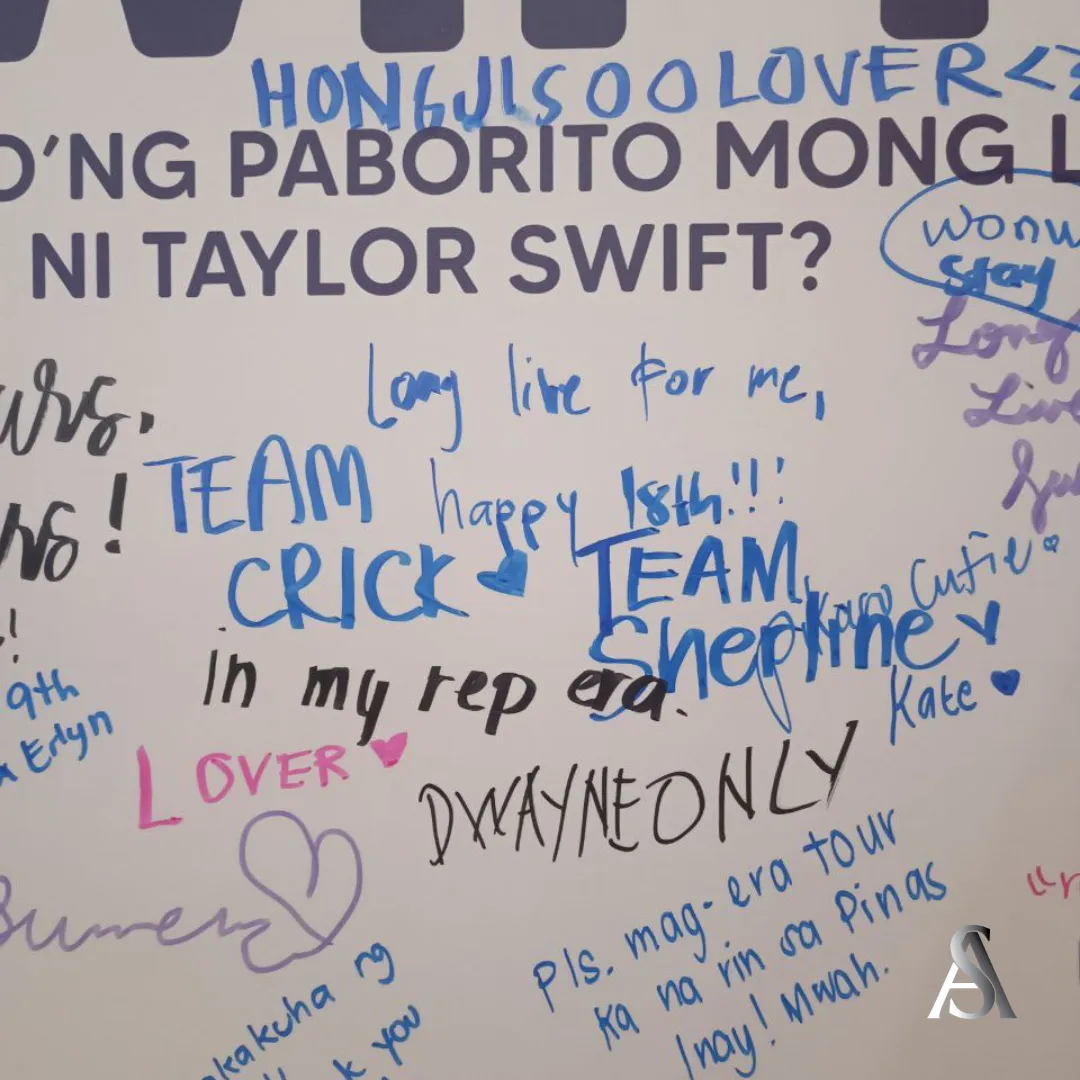 HONGJISOO LOVER <3
O'NG PABORITO MONG L
NI TAYLOR SWIFT?
wonw
stay
Long
Live
long live for me,
happy 18th!!!
TEAM
CRICK
TEAM
Shepline
Cutie
Kate
in my rep era.
9th
Erlyn
LOVER
DWAYNEONLY
Pls. mag-era tour
ka na rin sa Pinas
Inay! Mwah.
kakuha ng
you
AS